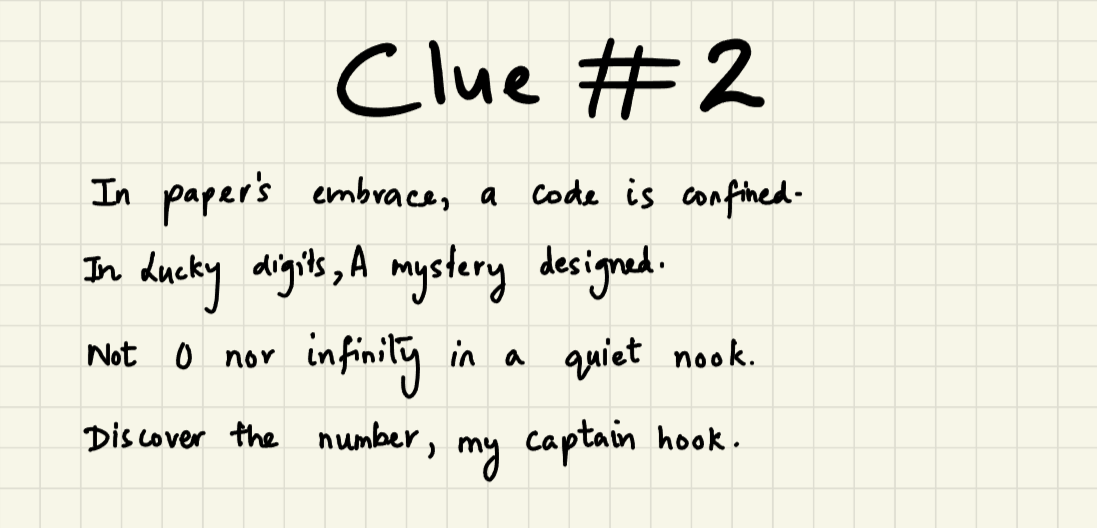 Clue #2
In paper's embrace, a code is confined-
In Lucky digits, A mystery designed.
Not 0 nor infinity in a quiet nook.
Discover the number, my captain hook.